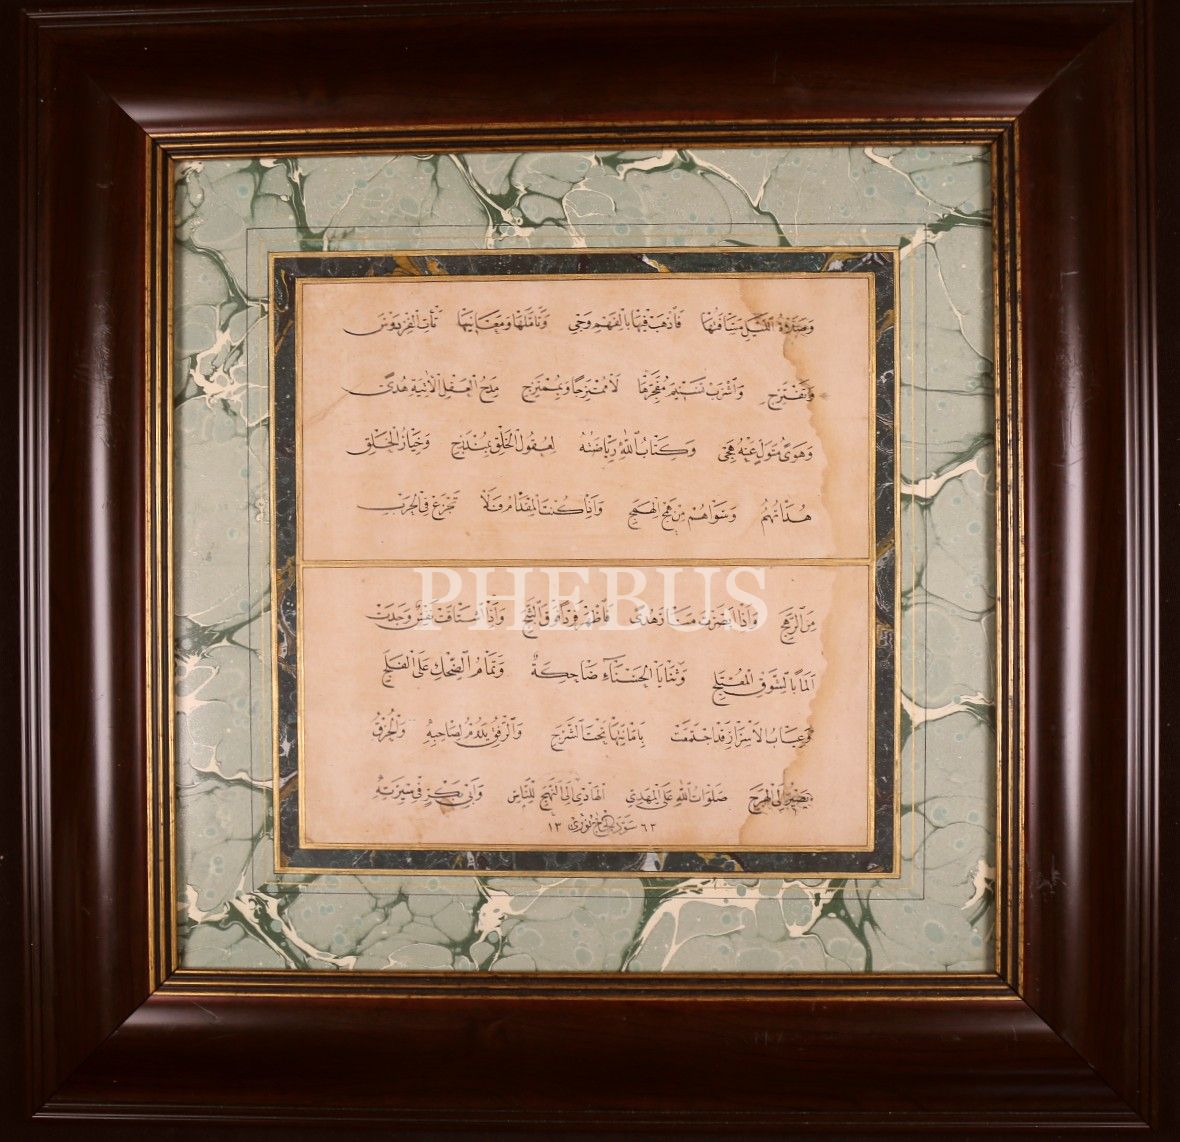 وَصَلَاةُ اللَّيْلِ مَسَافَتُهَا فَاذْهَبْ فِيهَا بِالْفَهْمِ وَجِي وَتَأَمَّلْهَا وَمَعَانِيهَا تَأْتِ الْفِرْدَوْسَ
وَتَفْتَرِجِ وَاشْرَبْ تَسْنِيمَ مُفَجَّرِهَا لَا مُمْتَزِجًا وَبِمُمْتَزِجِ مُدِحَ الْعَقْلُ الْآتِيهِ هُدًى
وَهَوًى مُتَوَلٍّ عَنْهُ هُجِي وَكِتَابُ اللّٰهِ رِيَاضَتُهُ لِعُقُولِ الْخَلْقِ بِمُنْدَرِجِ وَخِيَارُ الْخَلْقِ
هُدَاتُهُمُ وَسِوَاهُمْ مِنْ هَمَجِ الْهَمَجِ وَإِذَا كُنْتَ الْمِقْدَامَ فَلَا تَجْزَعْ فِي الْحَرْبِ
PHEBUS
مِنَ الرَّهَجِ وَإِذَا أَبْصَرْتَ مَنَارَ هُدًى فَاظْهَرْ فَرْدًا فَوْقَ الثَّبَجِ وَإِذَا اشْتَاقَتْ نَفْسٌ وَجَدَتْ
أَلَمًا بِالشَّوْقِ الْمُعْتَلِجِ وَثَنَايَا الْحَسْنَاءِ ضَاحِكَةٌ وَتَمَامُ الضِّحْكِ عَلَى الْفَلَجِ
وَعِيَابُ الْأَسْرَارِ قَدِ اجْتَمَعَتْ بِأَمَانَتِهَا تَحْتَ الشَّرَجِ وَالرِّفْقُ يَدُومُ لِصَاحِبِهِ وَالْخُرْقُ
يَصِيرُ إِلَى الْهَرَجِ صَلَوَاتُ اللّٰهِ عَلَى الْمَهْدِيِّ الْهَادِي إِلَى النَّهَجِ لِلنَّاسِ وَأَبِي بَكْرٍ فِي سِيرَتِهِ
سَوَّدَهُ الْحَاجُّ نُورِي ١٣ ٦٣